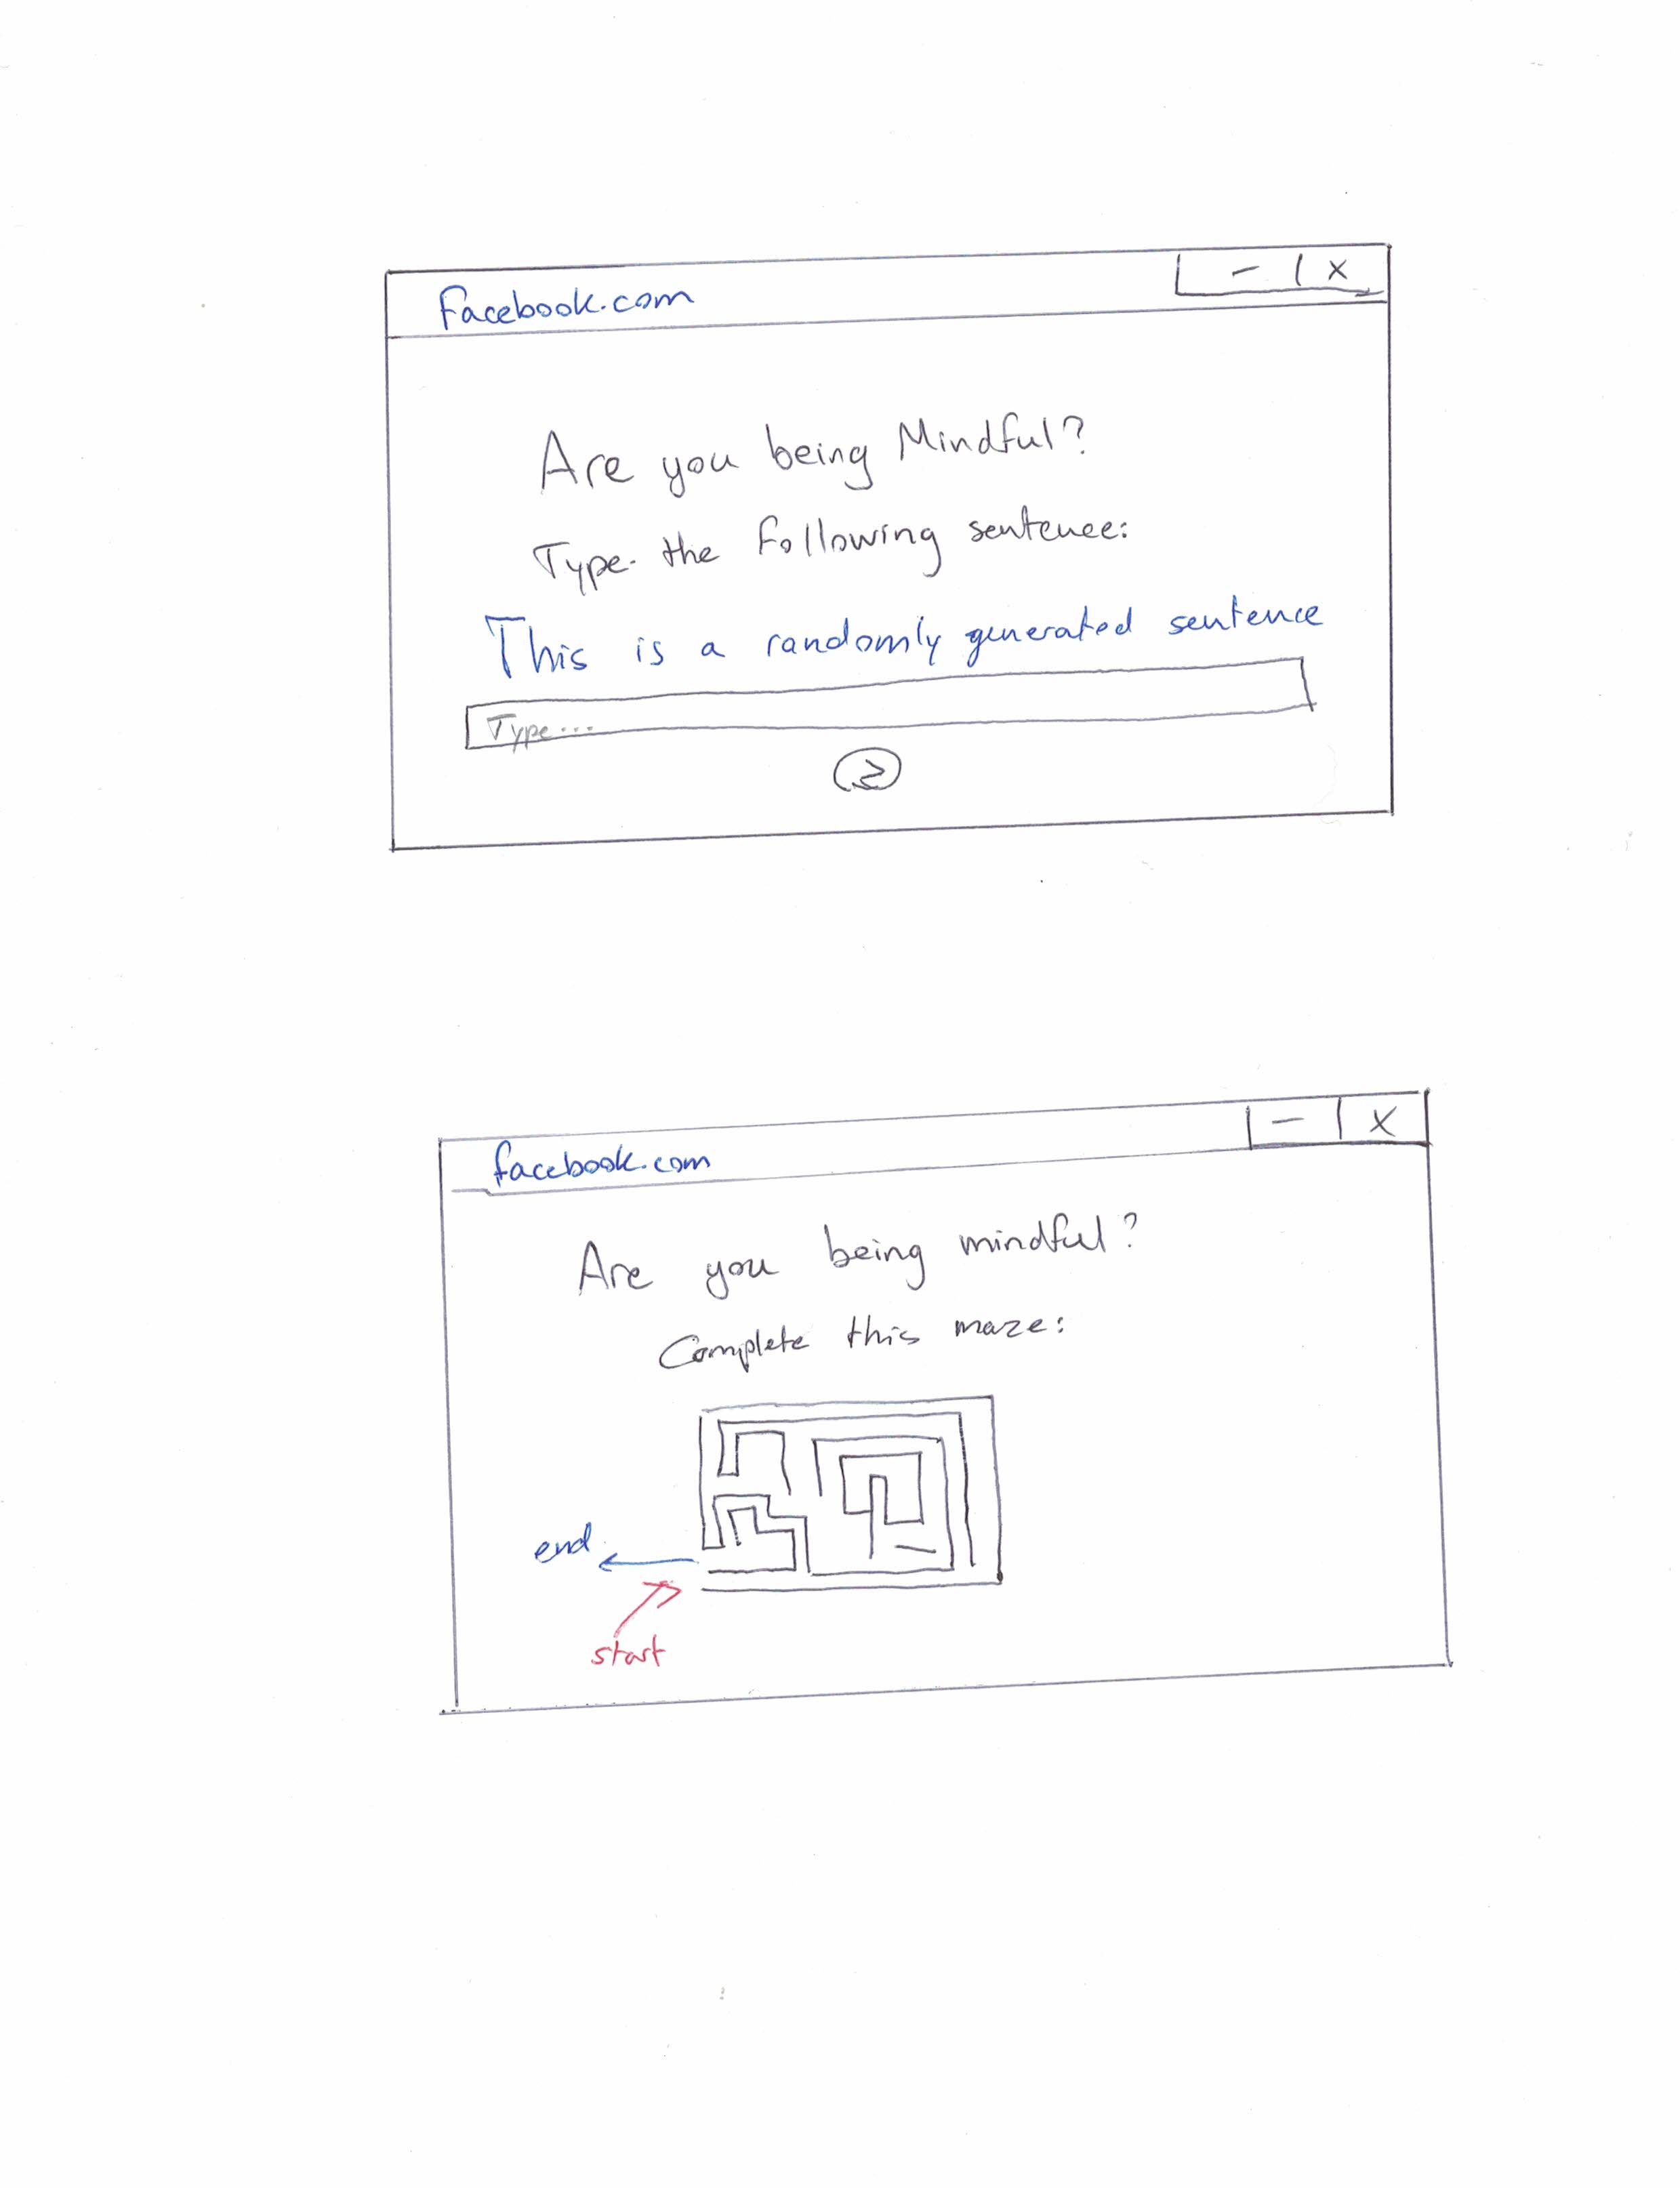 Facebook.com
- | x
Are you being Mindful?
Type the following sentence:
This is a randomly generated sentence
Type...
facebook.com
- | x
Are you being mindful?
Complete this maze:
end
start